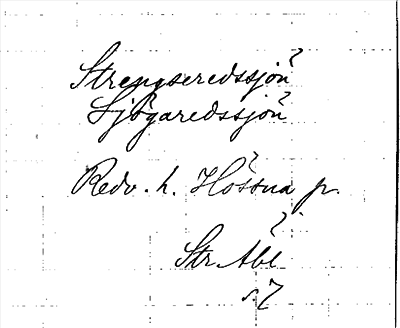 Strengseredssjön
Sjögaredssjön
Redv. h. Hössna p.
Str Abl
s 7